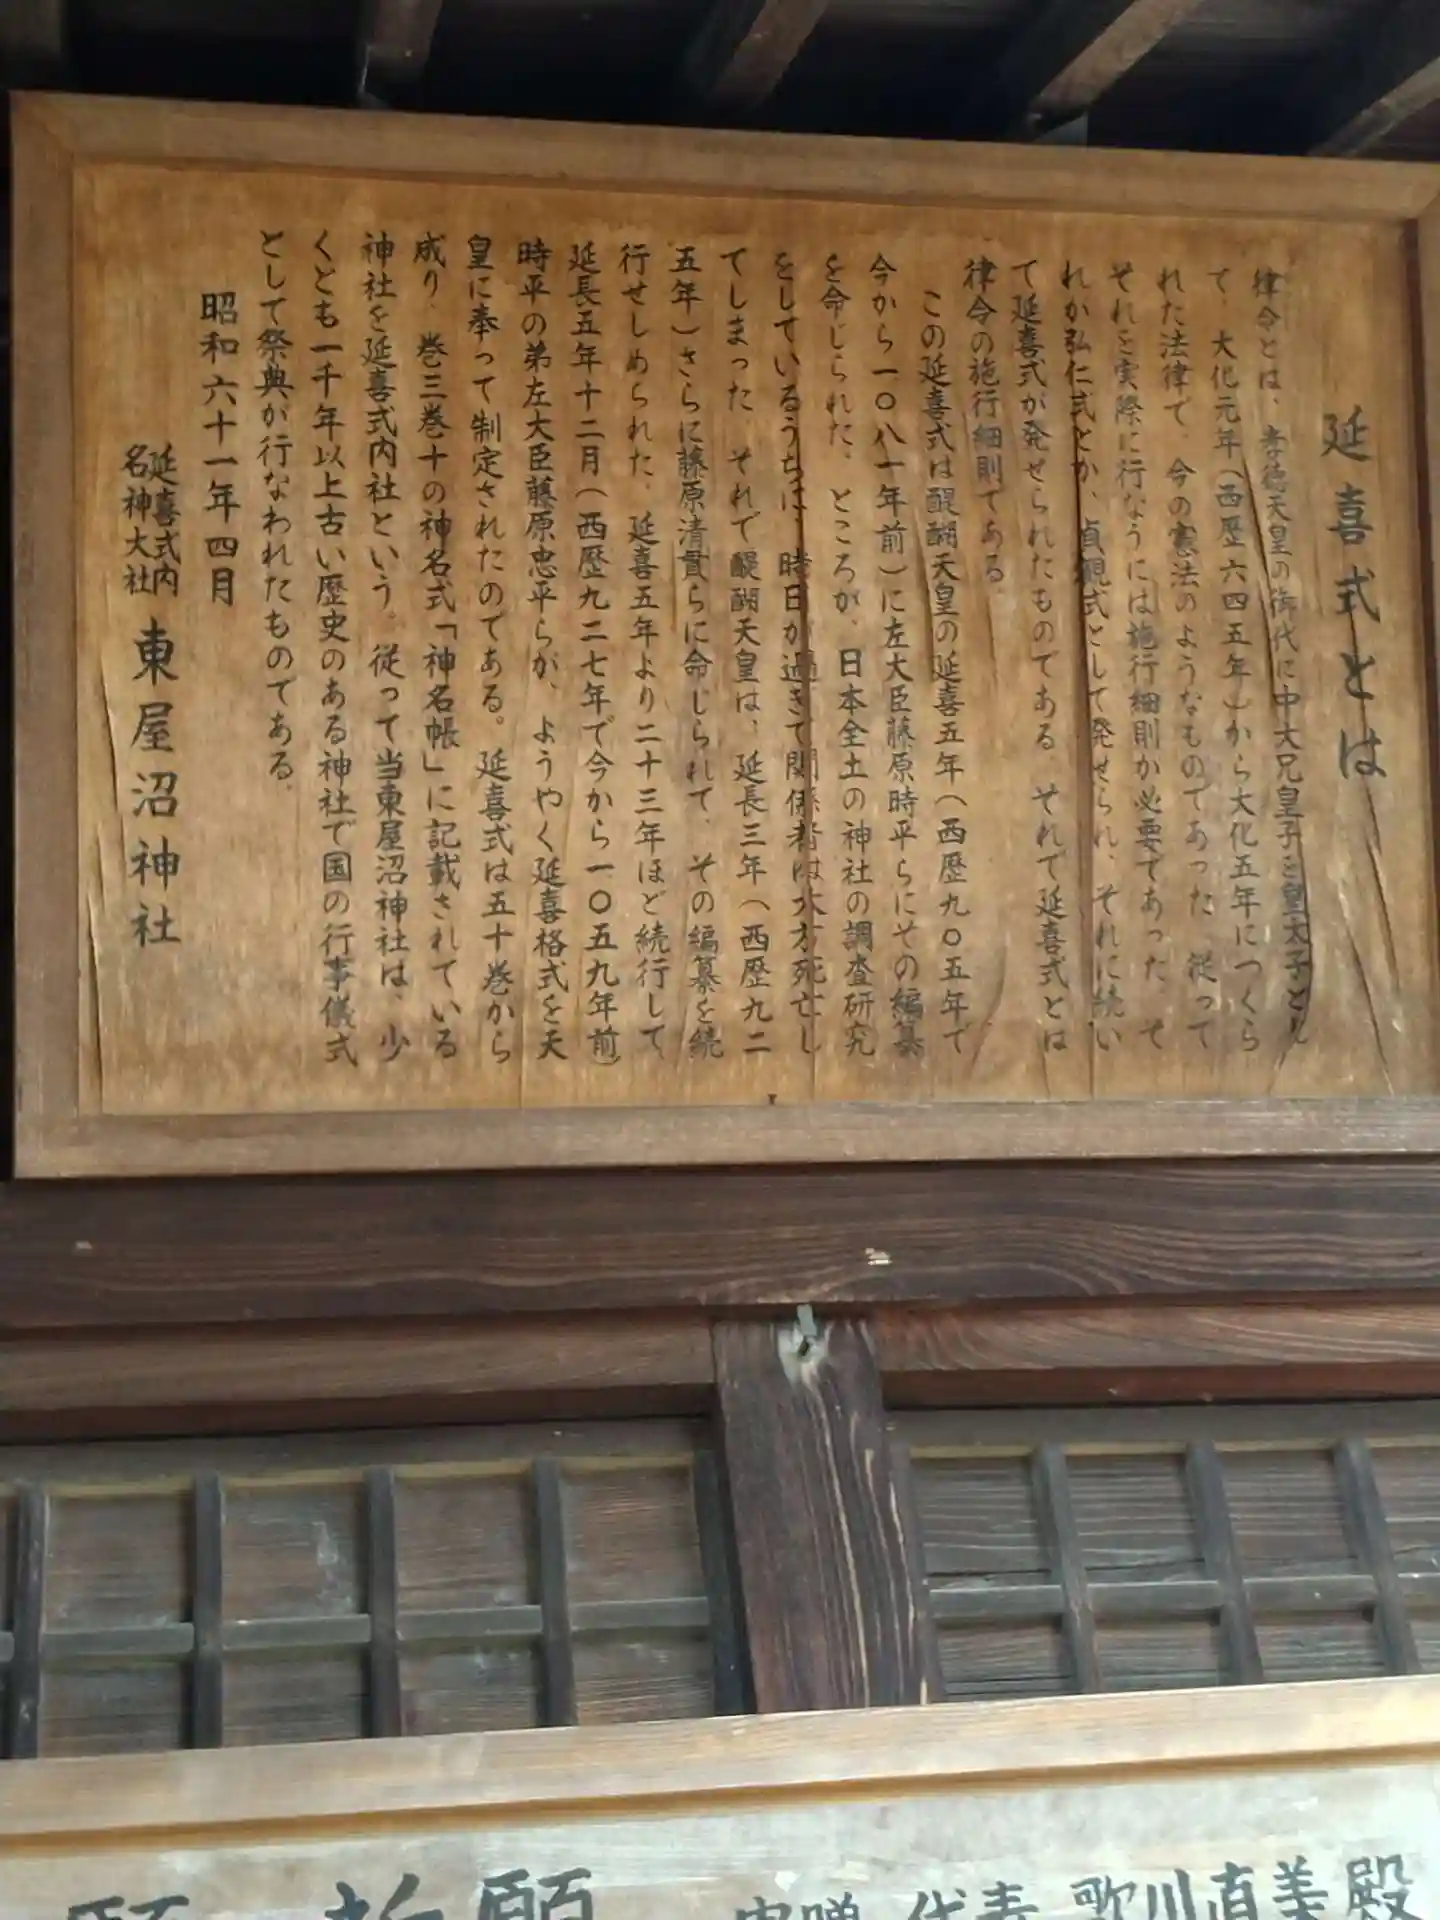 延喜式とは
律令とは、孝徳天皇の御代に中大兄皇子を皇太子とし
て、大化元年(西歴六四五年)から大化五年につくら
れた法律で、今の憲法のようなものであった、従って
それを実際に行なうには施行細則が必要であった、そ
れが弘仁式とか、貞観式として発せられ、それに続い
て延喜式が発せられたものである、それで延喜式とは
律令の施行細則である、
この延喜式は醍醐天皇の延喜五年(西歴九〇五年で
今から一〇八一年前)に左大臣藤原時平らにその編纂
を命じられた、ところが、日本全土の神社の調査研究
をしているうちに、時日が過ぎて関係者は大方死亡し
てしまった、それで醍醐天皇は、延長三年(西歴九二
五年)さらに藤原清貫らに命じられて、その編纂を続
行せしめられた、延喜五年より二十三年ほど続行して
延長五年十二月(西歴九二七年で今から一〇五九年前)
時平の弟左大臣藤原忠平らが、ようやく延喜格式を天
皇に奉って制定されたのである。延喜式は五十巻から
成り、巻三巻十の神名式「神名帳」に記載されている
神社を延喜式内社という。従って当東屋沼神社は、少
くとも一千年以上古い歴史のある神社で国の行事儀式
として祭典が行なわれたものである、
昭和六十一年四月
延喜式内
名神大社
東屋沼神社
殿
歌川直美
代表